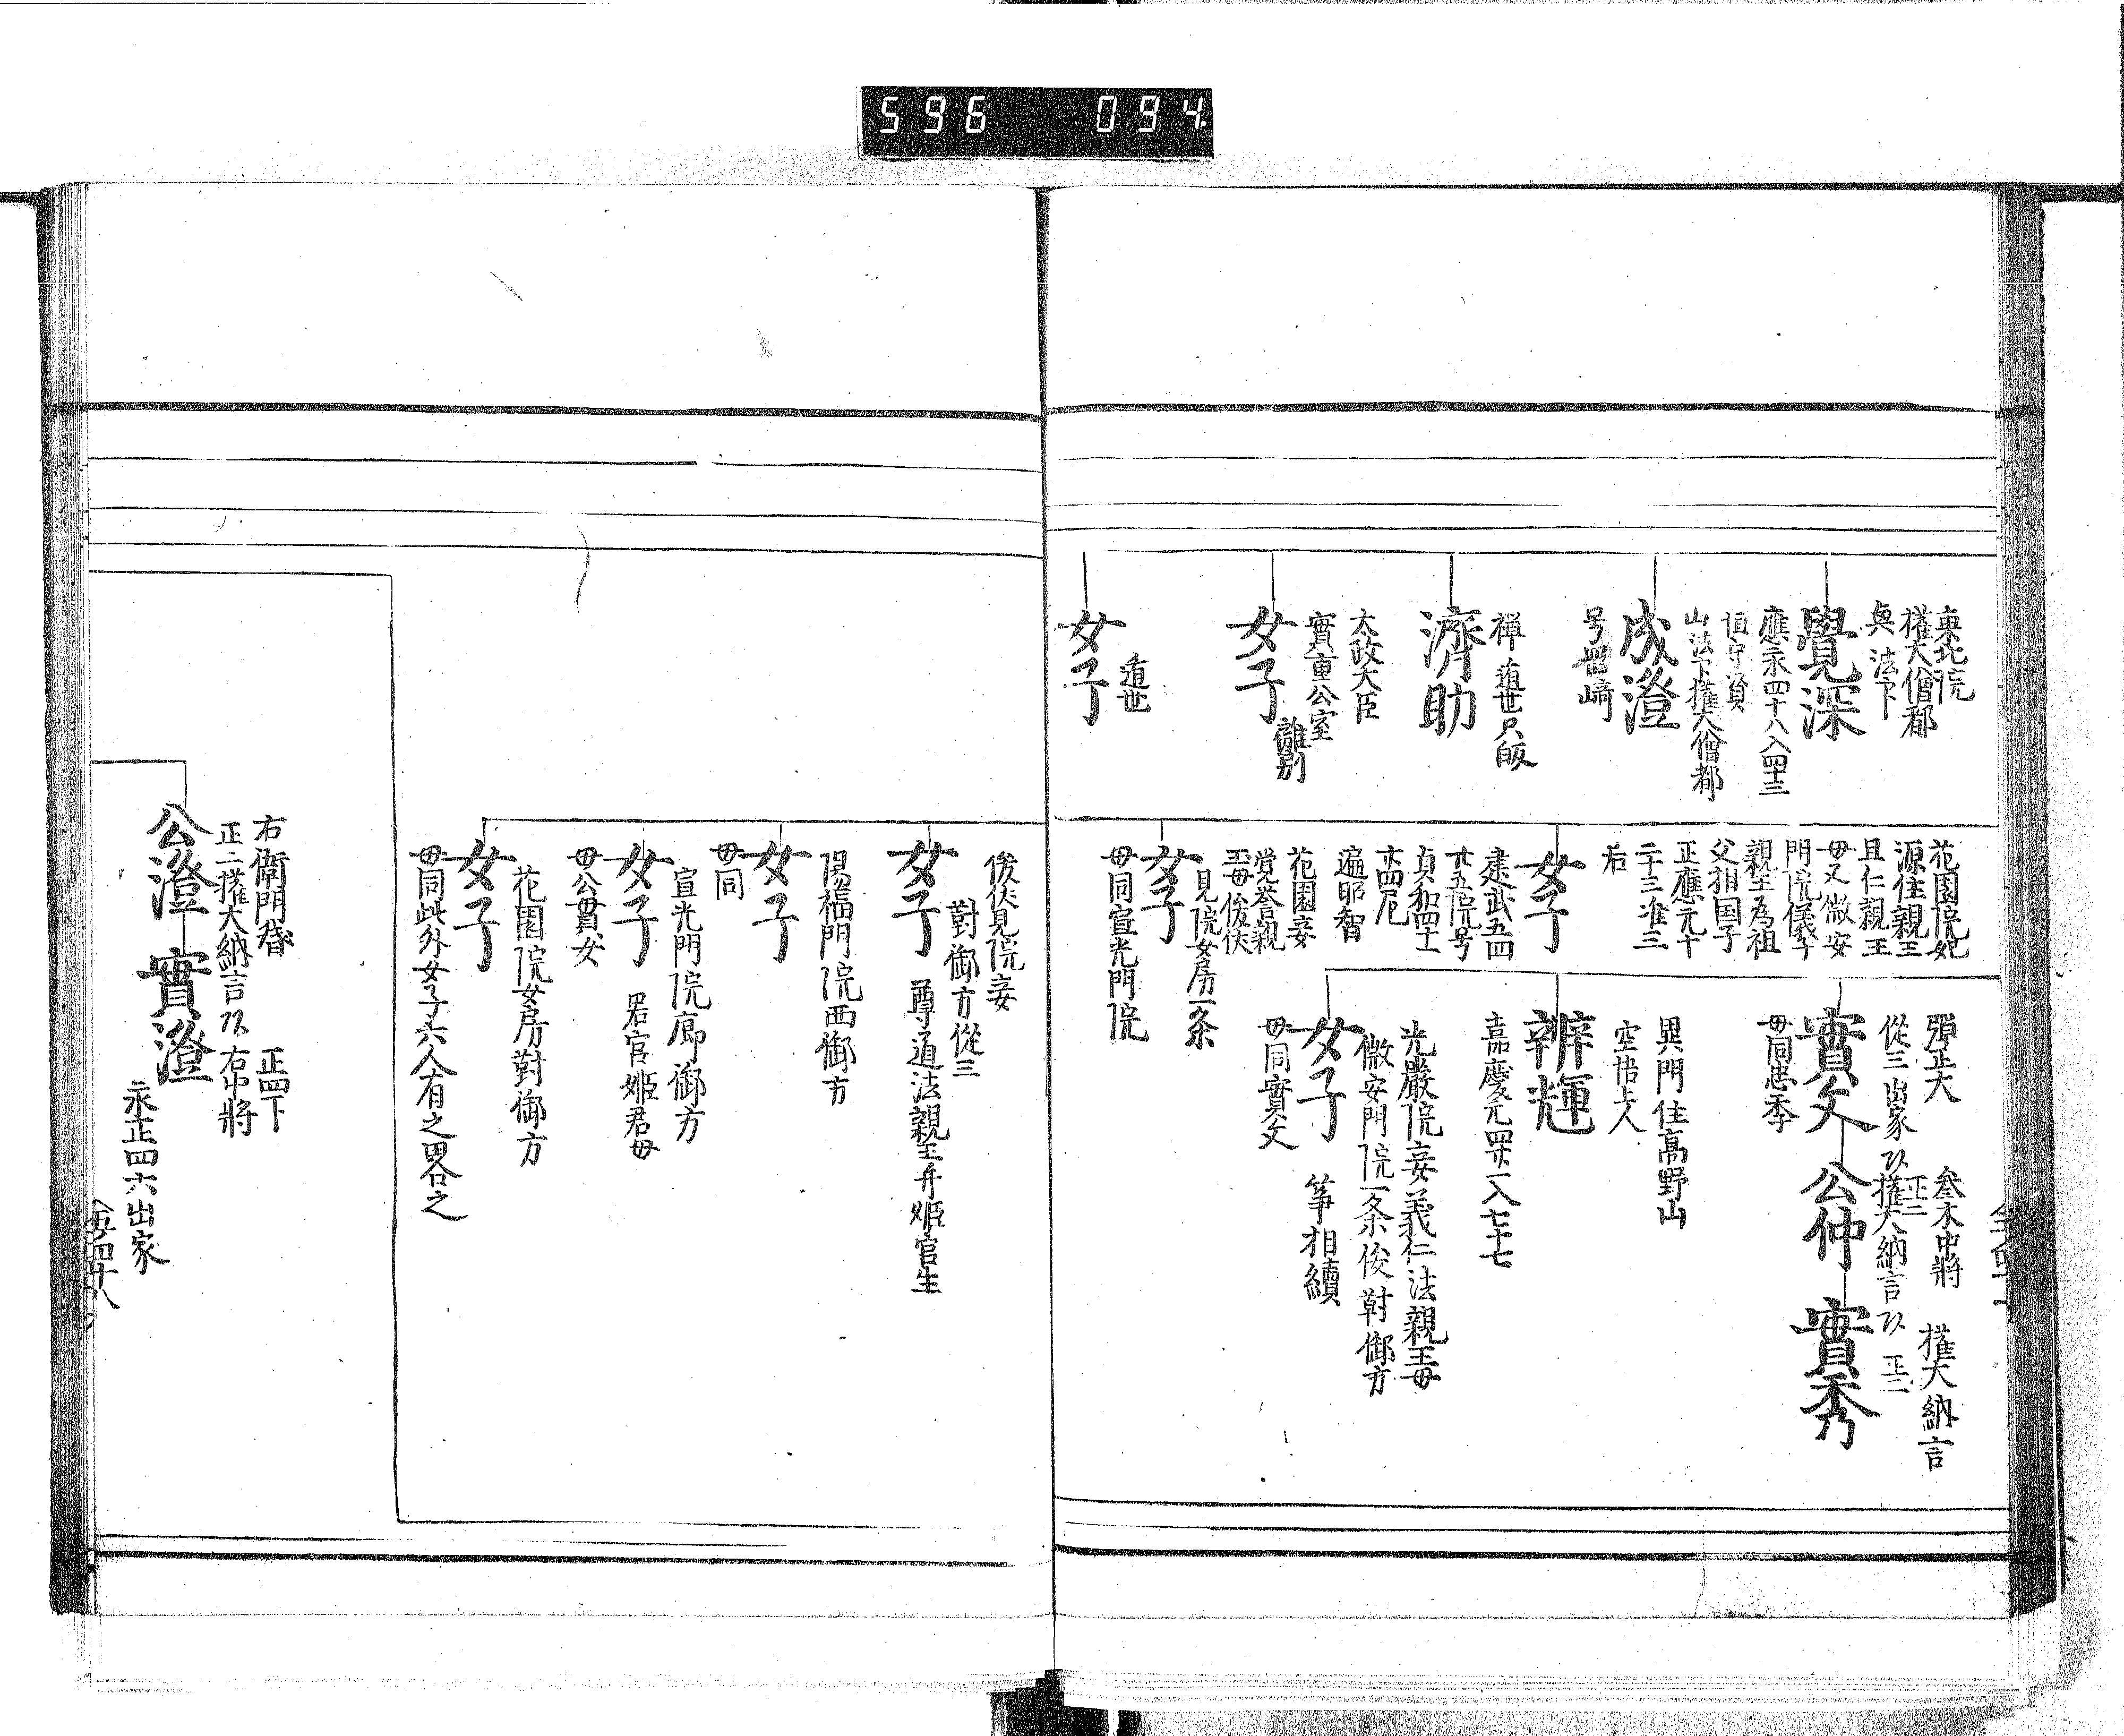 596 094
東北院
権大僧都
奥 法下
覺深
應永四十八入四十三
恒守資
山法下権大僧都
成澄
号
禅 遁世
濟助
大政大臣
實重公室
離別
女子
遁世
女子
花園院妃
源性親王
且仁親王
母又徽安
門院儀子
親王為祖
父相国子
正應元十
二十三准三
后
女子
建武五四
廿五院号
貞和四十一
廿四尼
遍昭智
花園妾
覚誉親
王母 後伏
見院女房一条
女子
母同宣光門院
彈正大
従三出家以
實文
母同忠季
叅木中將
正二
権大納言以
公仲
権大納言
正二
實秀
異門住高野山
空悟上人
辨輝
嘉慶元 入七十七
光嚴院妾義仁法親王母
徽安門院一条後對御方
女子
箏相續
母同實文
後伏見院妾
對御方従三
女子
尊道法親王并姫宮生
陽福門院西御方
女子
母同
宣光門院廊御方
女子
若宮姫君母
母公貫女
花園院女房對御方
女子
母同此外女子六人有之畧之
右衛門督
正二権大納言以
公澄
正四下
右中將
實澄
永正四六出家